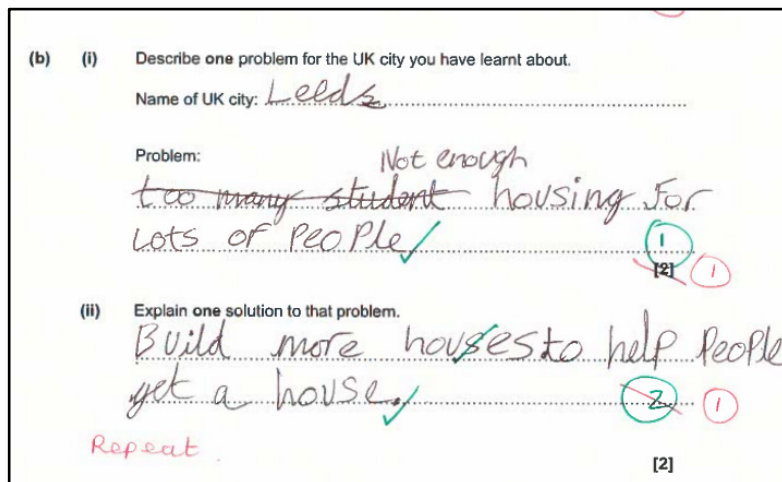 (b) (i) Describe one problem for the UK city you have learnt about.
Name of UK city: Leeds
Problem:
Not enough
too many student housing for
Lots of people
1
[2] 1
(ii) Explain one solution to that problem.
Build more houses to help people
get a house.
2 1
Repeat.
[2]